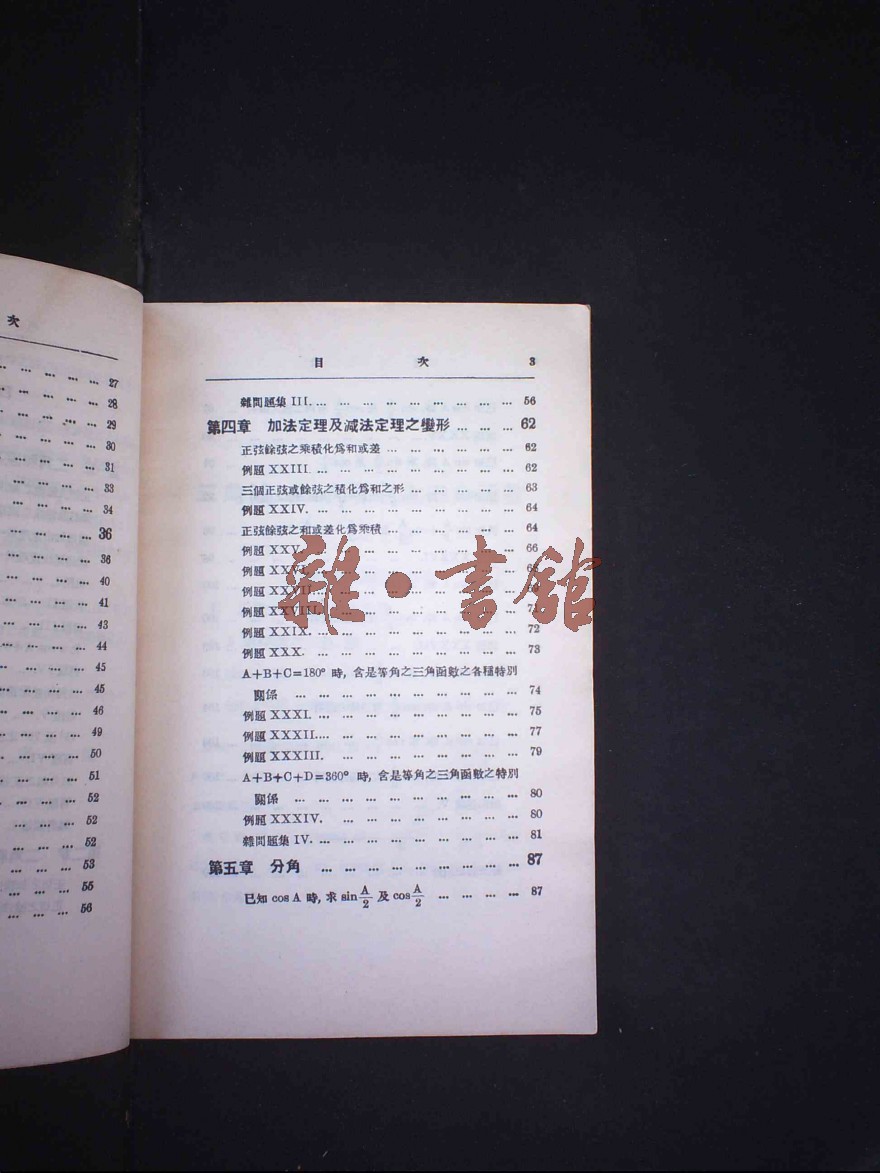 次
27
28
29
30
31
33
34
36
36
40
41
43
44
45
45
46
49
50
51
52
52
52
53
55
56
目 次 3
雜問題集 III. ... ... ... ... ... ... ... ... ... 56
第四章 加法定理及減法定理之變形 ... ... ... 62
正弦餘弦之乘積化爲和或差 ... ... ... ... ... ... 62
例題 XXIII. ... ... ... ... ... ... ... ... ... 62
三個正弦或餘弦之積化爲和之形 ... ... ... ... ... 63
例題 XXIV. ... ... ... ... ... ... ... ... ... 64
正弦餘弦之和或差化爲乘積 ... ... ... ... ... ... 64
例題 XXV. ... ... ... ... ... ... ... ... ... 66
例題 XXVI. ... ... ... ... ... ... ... ... ... 68
例題 XXVII. ... ... ... ... ... ... ... ...
例題 XXVIII. ... ... ... ... ... ... ... ...
例題 XXIX. ... ... ... ... ... ... ... ... ... 72
例題 XXX. ... ... ... ... ... ... ... ... ... 73
A+B+C=180° 時, 含是等角之三角函數之各種特別
關係 ... ... ... ... ... ... ... ... ... ... 74
例題 XXXI. ... ... ... ... ... ... ... ... ... 75
例題 XXXII. ... ... ... ... ... ... ... ... ... 77
例題 XXXIII. ... ... ... ... ... ... ... ... 79
A+B+C+D=360° 時, 含是等角之三角函數之特別
關係 ... ... ... ... ... ... ... ... ... ... 80
例題 XXXIV. ... ... ... ... ... ... ... ... 80
雜問題集 IV. ... ... ... ... ... ... ... ... ... 81
第五章 分角 ... ... ... ... ... ... ... ... ... 87
已知 cos A 時, 求 sin A/2 及 cos A/2 ... ... ... ... 87
雜·書館